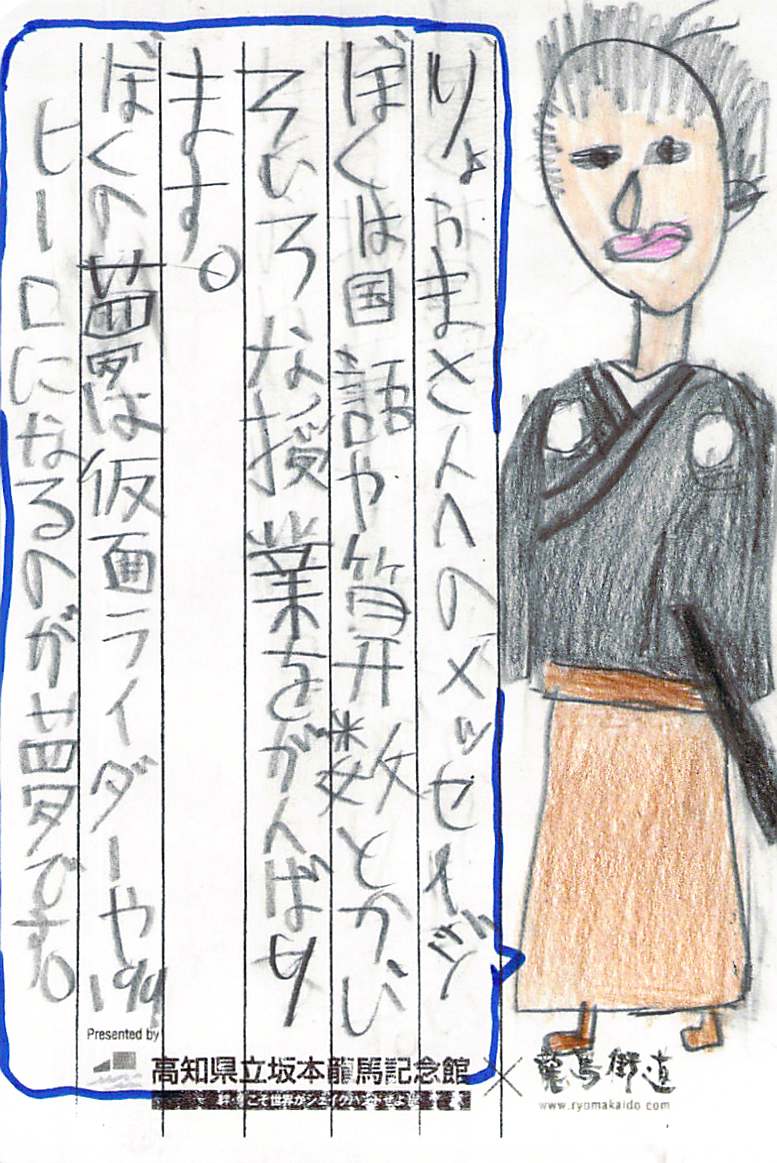 りょうまさんへのメッセイジ
ぼくは国語や算数とかい
ろいろな授業をがんばり
ます。
ぼくの夢は仮面ライダーや
ヒーロになるのが夢です。
Presented by
高知県立坂本龍馬記念館
龍馬街道
www.ryomakaido.com